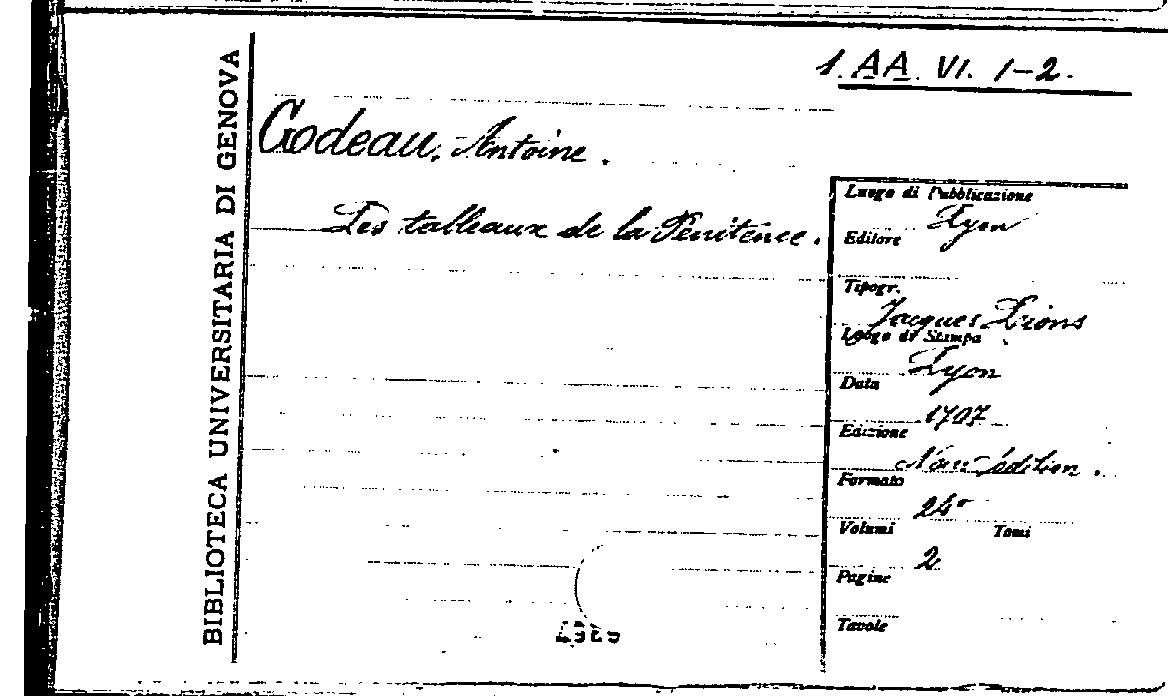 1. AA. VI. 1-2.
BIBLIOTECA UNIVERSITARIA DI GENOVA
Godeau, Antoine.
Les tableaux de la Penitence.
Luogo di Pubblicazione
Lyon
Editore
Tipogr.
Jacques Lions
Luogo di Stampa
Lyon
Data
1707
Edizione
Nouv. édition.
Formato
24°
Volumi Tomi
2
Pagine
Tavole